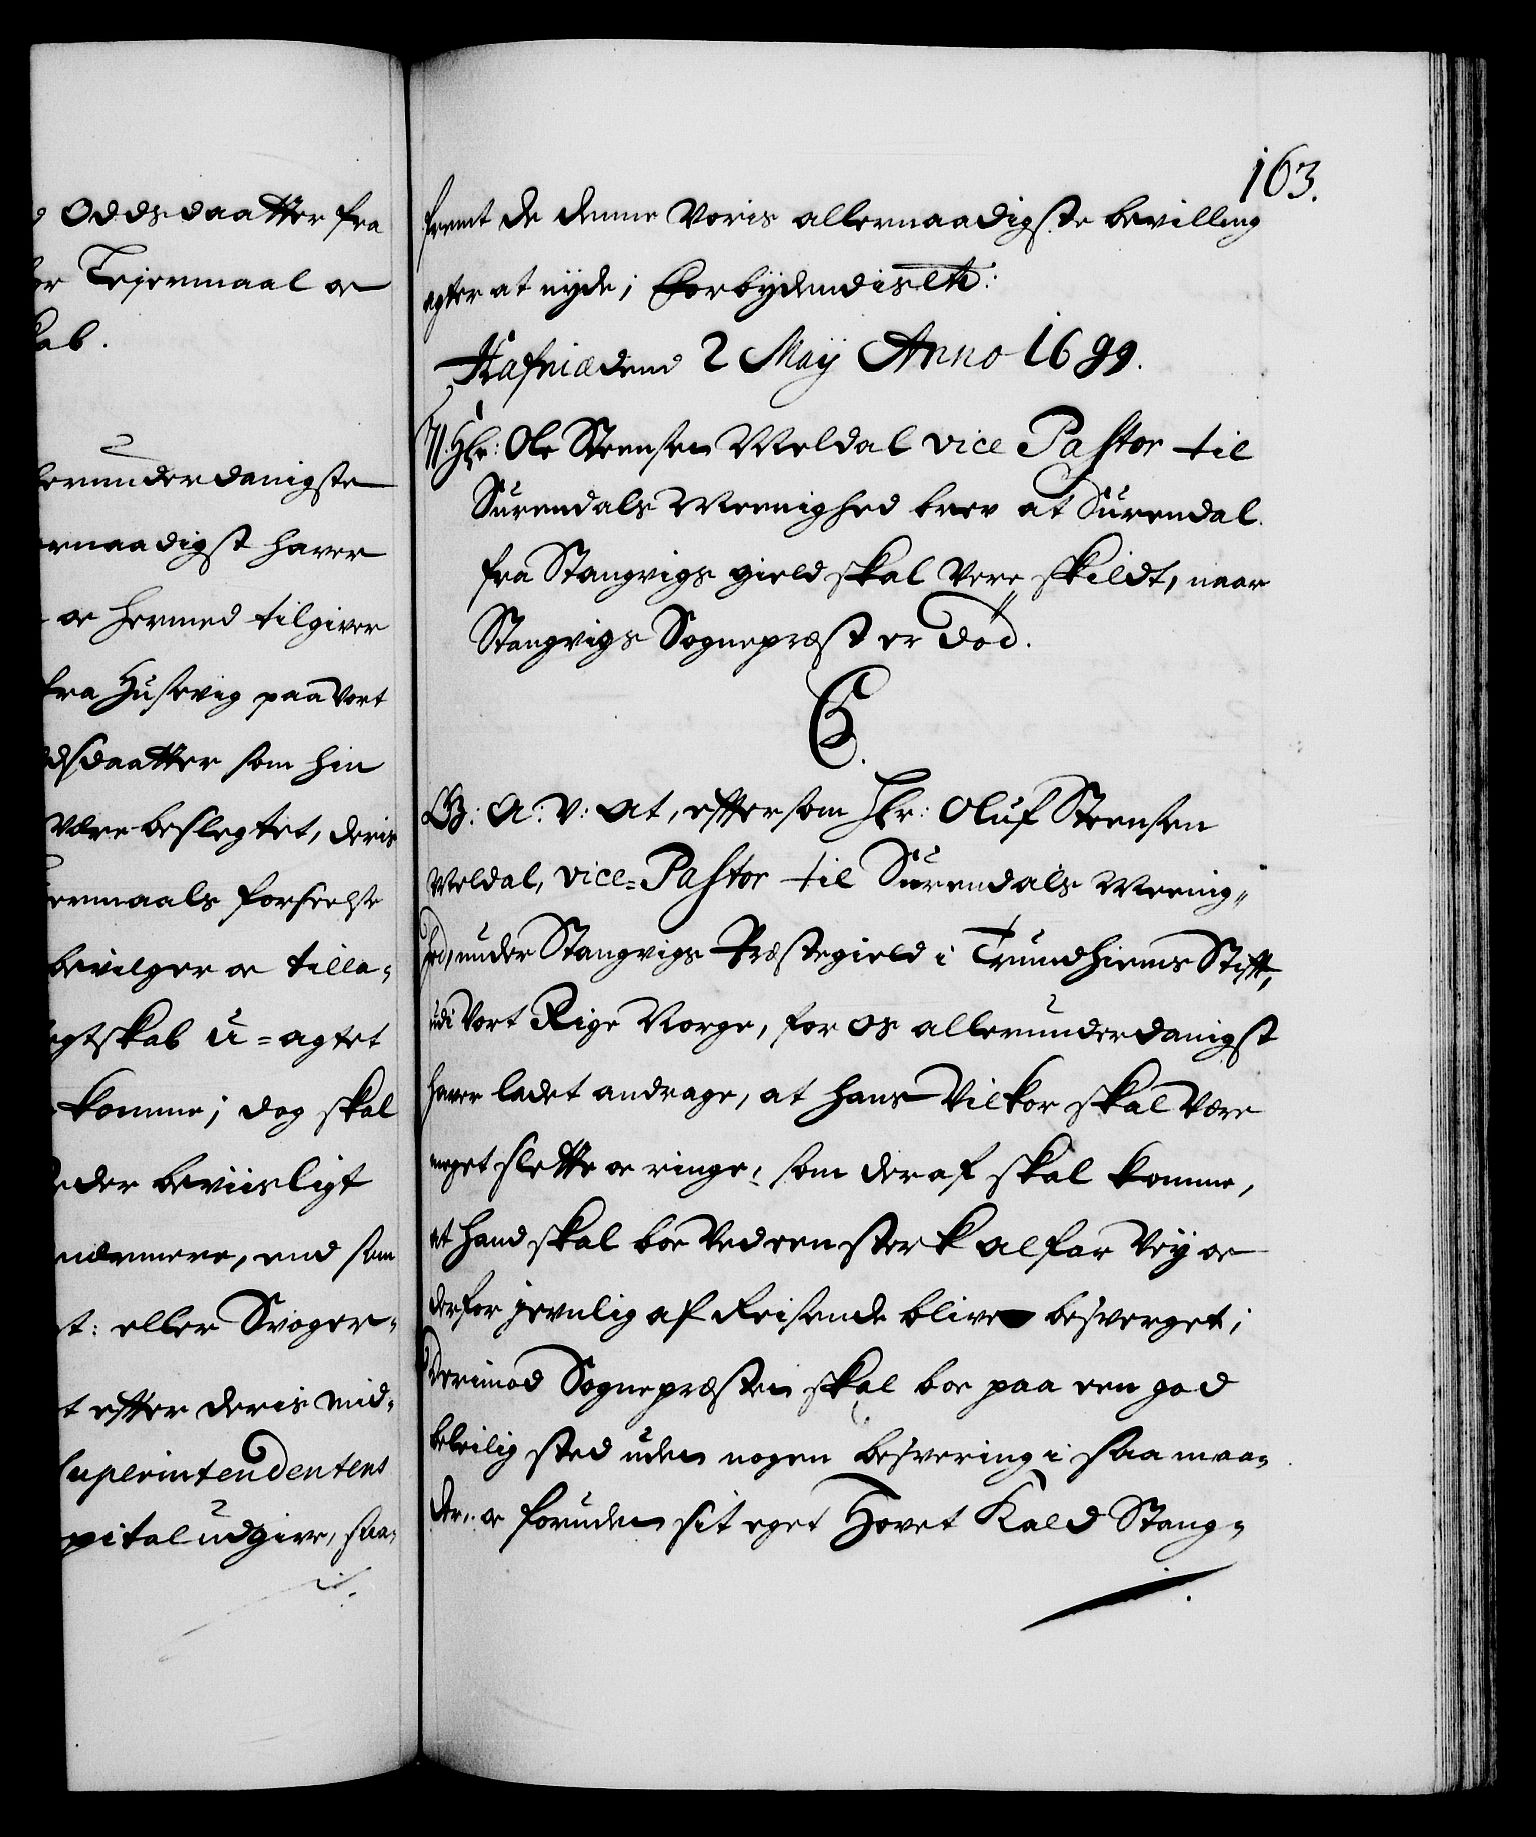 Oddsdaatter fra
Lejermaal oc
kab.
lerunderdanigste
ernaadigst hafver
oc hermed tilgiver
fra Husevig paa Vort
dsdaatter som hin
Være beslegtet, deris
ermaals forseelse
bevilger oc tilla-
egtskab u-agtet
komme; dog skal
eder beviisligt
nærmere, end som
t: eller Svoger-
t efter deris mid-
Superintendentens
pital udgive, saa-
163.
fremt de denne Voris allernaadigste bevilling
agter at nyde; Forbydendis etc:
Hafniæ dend 2 Maij Anno 1699.
Hr: Ole Steensen Meldal vice Pastor til
Surendals Meenighed brev at Surendal
fra Stangvigs gield skal Være skildt, naar
Stangvigs Sognepræst er död.
C5.
G: A: V: at, eftersom Hr: Oluf Steensen
Meldal, vice-Pastor til Surendals Meenig-
hed, under Stangvigs Præstegield i Trundhiems Stift,
udi Vort Rige Norge, for os allerunderdanigst
hafver ladet andrage, at hans Vilkor skal Være
meget slette oc ringe, som deraf skal komme,
at hand skal boe Ved een sterk alfar Vej oc
derfor jevnlig af Reisende blive besverget;
Derimod Sognepræsten skal boe paa een god
beleilig sted uden nogen besvering i saa maa-
der, oc foruden sit eget Hovet Kald Stang-